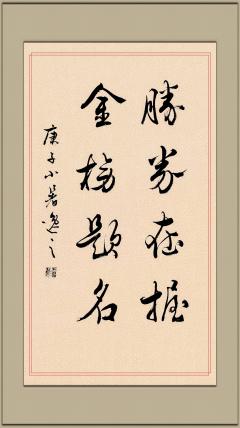 勝券在握
金榜題名
庚子小暑逸之